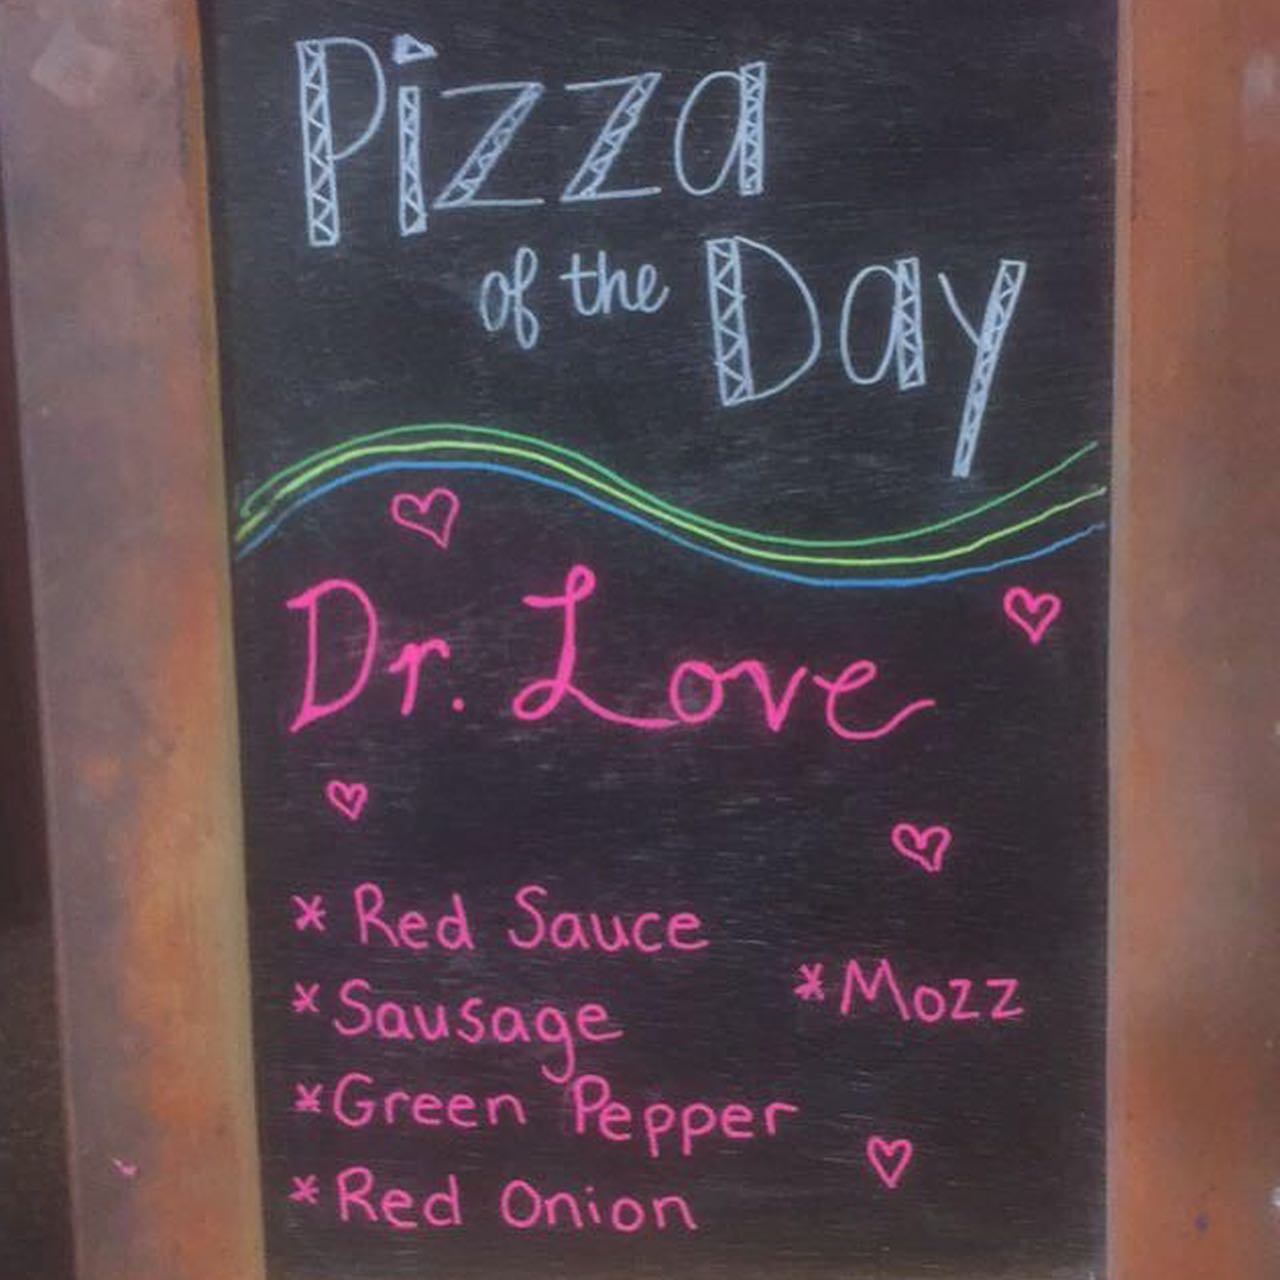 Pizza
of the Day
Dr. Love
* Red Sauce
* Sausage
* Mozz
* Green Pepper
* Red Onion